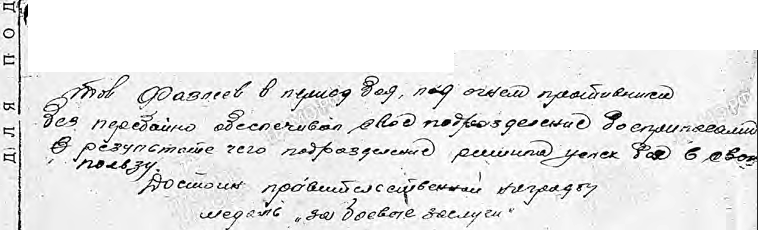 ДЛЯ ПОД
Тов Фазлеев в период боя, под огнем противника
без перебойно обеспечивал свое подразделение боеприпасами
В результате чего подразделение решила успех боя в свою
пользу.
Достоин правительственной награды
медаль „за боевые заслуги"